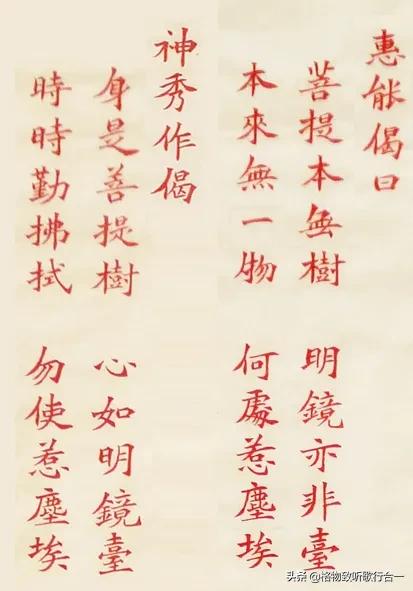 惠能偈曰
菩提本無樹 明鏡亦非臺
本來無一物 何處惹塵埃
神秀作偈
身是善提樹 心如明鏡臺
時時勤拂拭 勿使惹塵埃
头条 @格物致听歌行台一